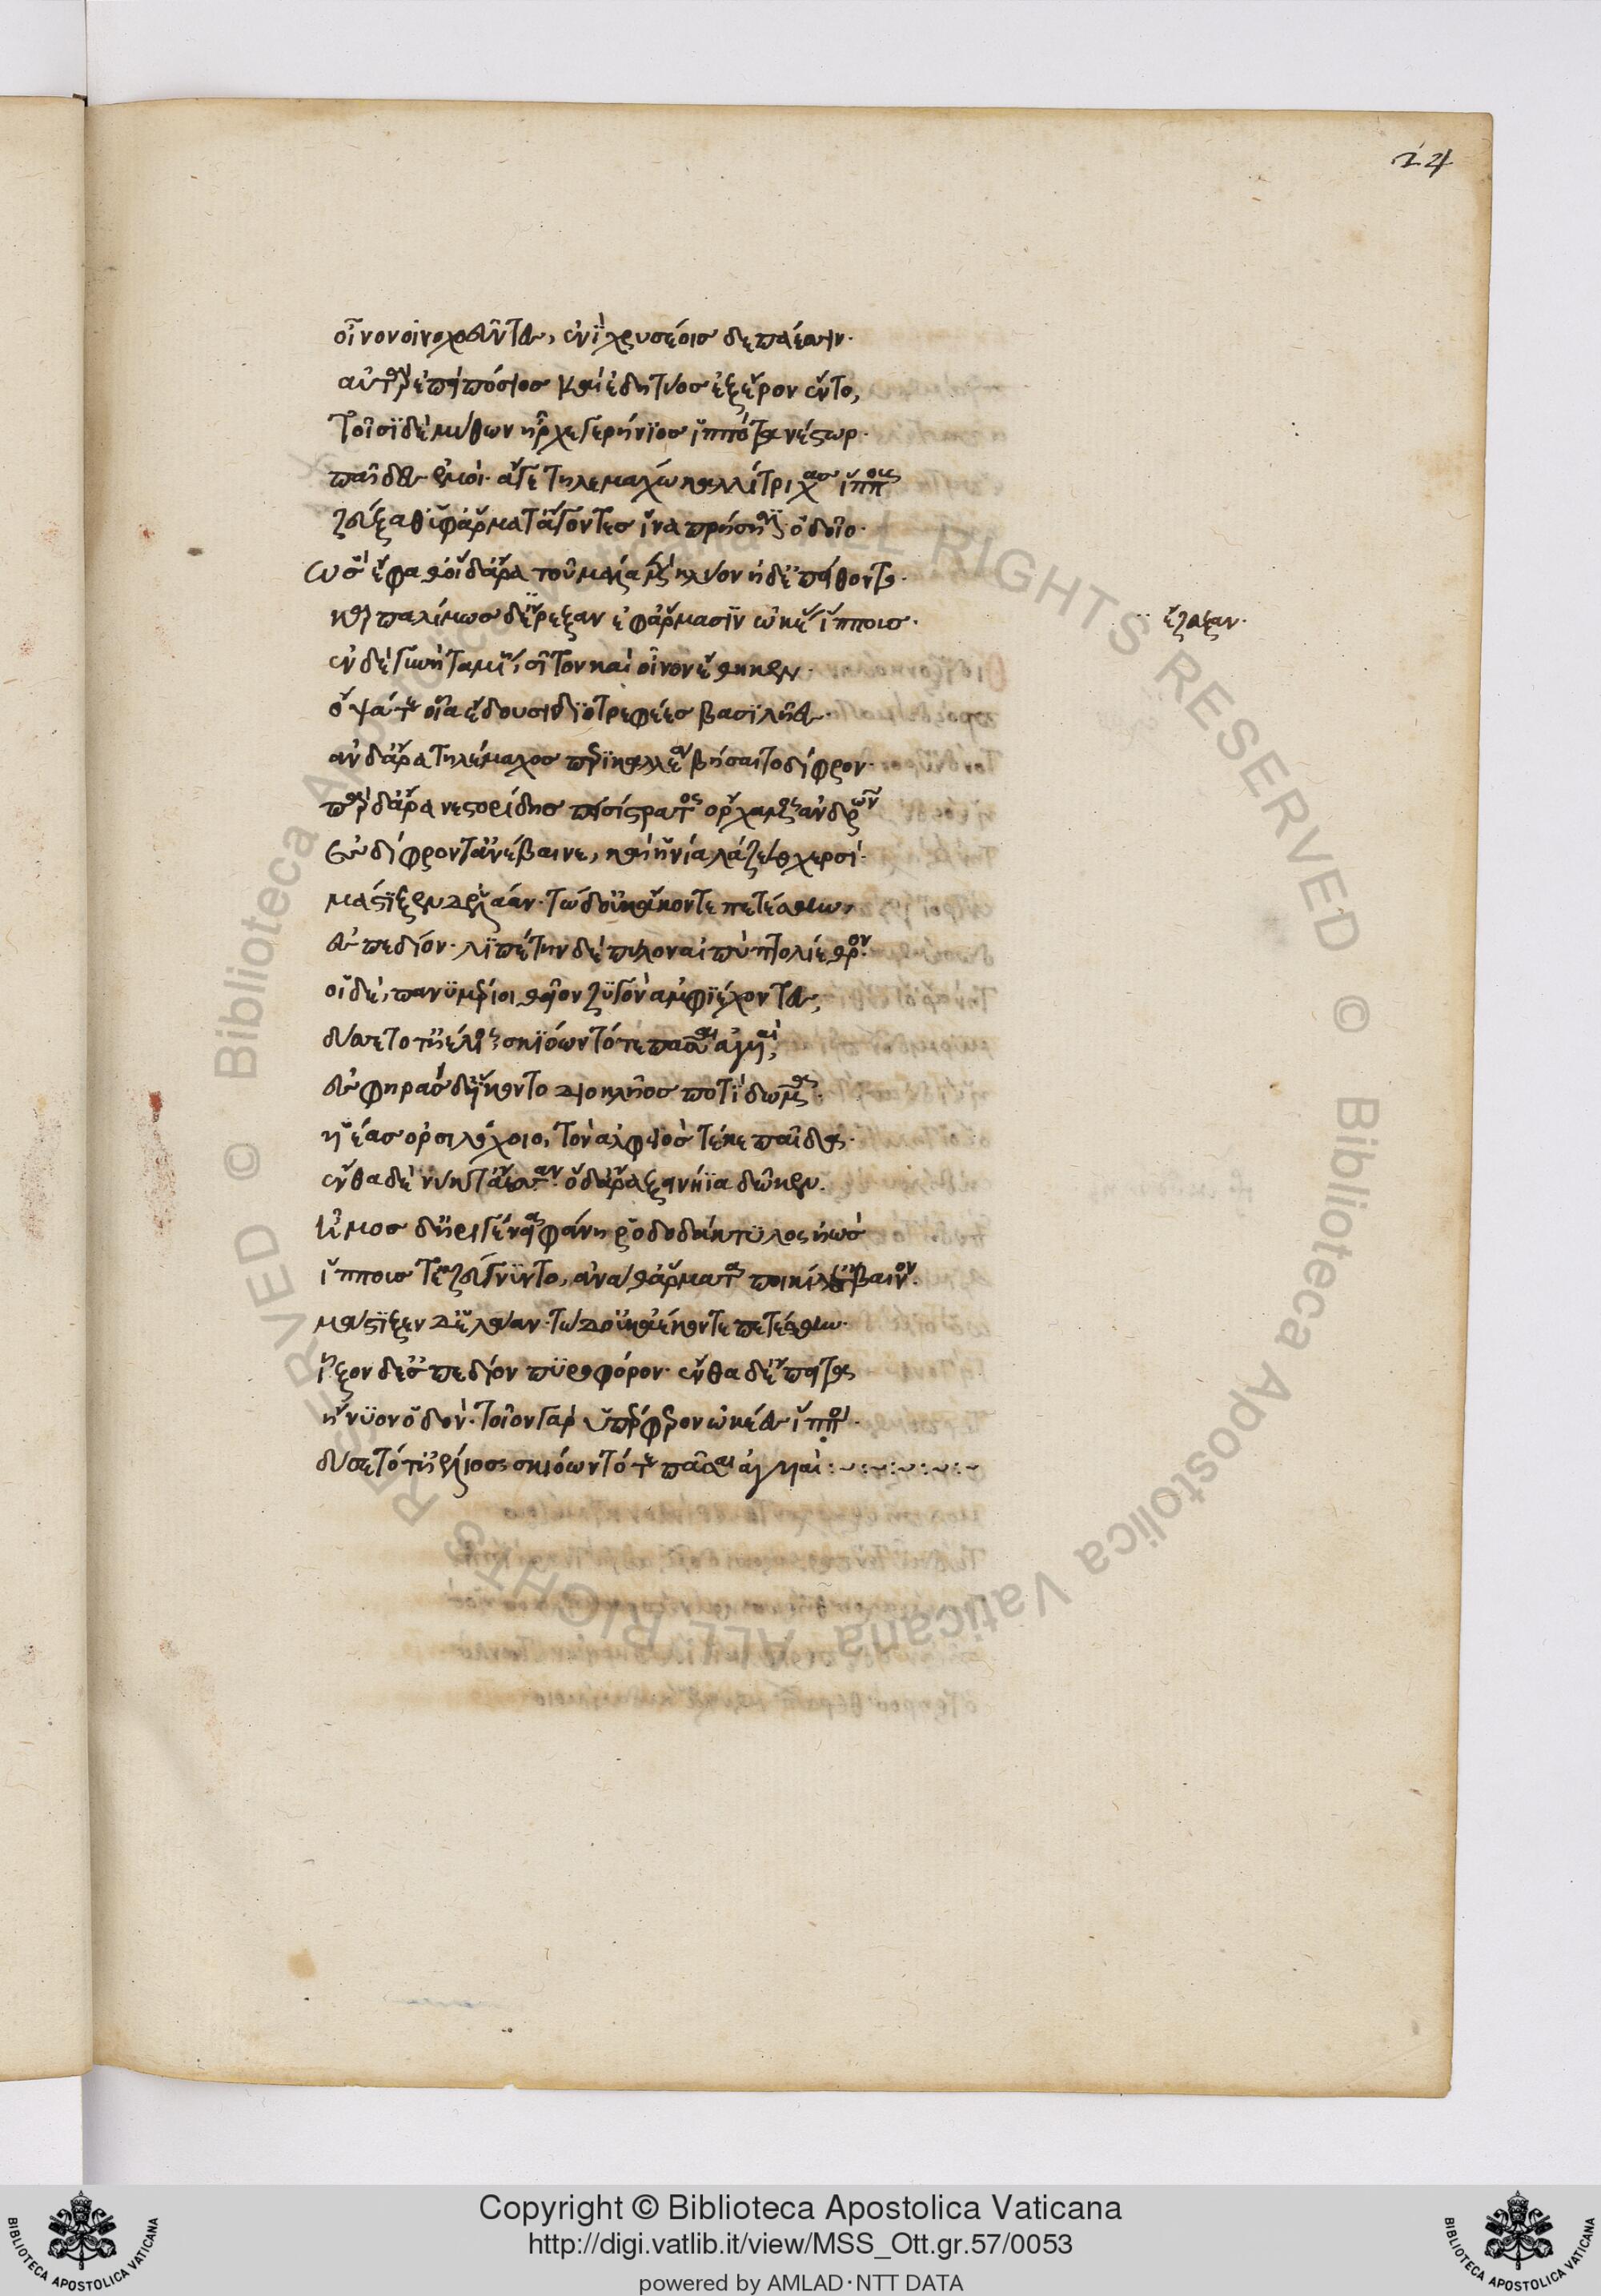 οἶνον οἰνοχοεῦντες, ἐνὶ χρυσέοισ δεπάεσσιν·
αὐτὰρ ἐπεὶ πόσιοσ καὶ ἐδητύοσ ἐξ ἔρον ἕντο,
τοῖσϊ δὲ μύθων ἦρχε γερήνϊοσ ἱππότα νέστωρ·
παῖδες ἐμοί· ἄγε τηλεμάχω καλλίτριχασ ἵππους
ζεύξαθ' ὑφ' ἅρματ' ἄγοντεσ ἵνα πρήσηισϊν ὁδοῖο·
ὣσ ἔφαθ' οἱ δ' ἄρα τοῦ μάλα μὲν κλύον ἠδ' ἐπίθοντο·
καρπαλίμωσ δ' ἔρεξαν ἐφ' ἅρμασϊν ὠκέασ ἵπποισ·
ἔζευξαν·
ἐν δὲ γυνὴ ταμίη, σῖτον καὶ οἶνον ἔθηκεν·
ὄψά τε οἷα ἔδουσι διοτρεφέεσ βασϊλῆες·
ἀν δ' ἄρα τηλέμαχοσ περϊκαλλέα βήσατο δίφρον·
πὰρ δ' ἄρα νεστορίδησ πεισίστρατος ὄρχαμος ἀνδρῶν
ἐσ δίφρον τ' ἀνέβαινε, καὶ ἡνία λάζετο χερσί·
μάστϊξεν δ' ἐλάαν· τὼ δ' οὐκ ἄκοντε πετέσθην
ἐσ πεδίον· λϊπέτην δὲ πύλου αἰπὺ πτολίεθρον·
οἱ δὲ, πανϋμέριοι σεῖον ζϋγὸν ἀμφϊσ ἔχοντες,
δύσετό τ' ἠέλιος σκϊόωντό τε πᾶσαι ἀγυιαί,
ἐσ φηρὰσ δ' ἵκοντο διοκλῆοσ ποτὶ δῶμα·
υἱέοσ ὀρσιλόχοιο, τὸν ἀλφειὸσ τέκε παῖδα·
ἔνθα δὲ νύκτ' ἄεσαν· ὁ δ' ἄρα ξεινήϊα δῶκεν·
ἦμοσ δ' ἠριγένεια φάνη ῥοδοδάκτϋλος ἠώσ
ἵπποισ τε ζεύγνϋντο, ἀνά θ' ἅρματα ποικίλ' ἔβαινον·
μάστϊξεν δ' ἐλάαν· τὼ δ' οὐκ ἀέκοντε πετέσθην·
ἷξον δ' ἐσ πεδίον πϋρηφόρον· ἔνθα δ' ἔπειτα
ἤνϋον ὁδόν· τοῖον γὰρ ὑπέκφερον ὠκέες ἵπποι·
δύσετό τ' ἠέλιοσ σκιόωντό τε πᾶσαι ἀγυιαί:~:~:~:~
24
Copyright © Biblioteca Apostolica Vaticana
http://digi.vatlib.it/view/MSS_Ott.gr.57/0053
powered by AMLAD·NTT DATA